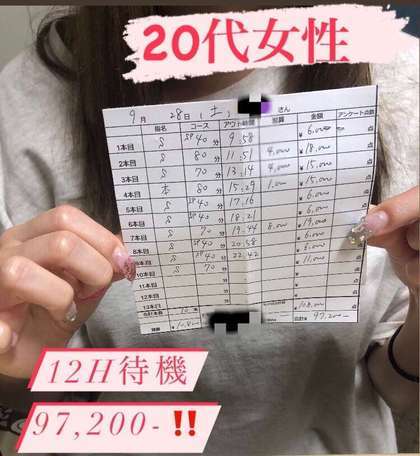 20代女性
9月 28日 (土) さん
指名 コース アウト時間 加算 金額 アンケート点数
1本目 S SP40分 9:58 ¥6,000 点
2本目 S 80分 11:51 4,000 ¥18,000 点
3本目 S 70分 13:14 4,000 ¥15,000 点
4本目 本 80分 15:29 1,000 ¥15,000 点
5本目 S SP40分 17:16 ¥6,000 点
6本目 S SP40分 18:21 ¥6,000 点
7本目 S 70分 19:44 8,000 ¥19,000 点
8本目 S SP40分 20:58 ¥6,000 点
9本目 S SP40分 22:42 ¥6,000 点
10本目 S 70分 ¥11,000 点
11本目 分 ¥ 点
12本目 分 ¥ 点
13本目 分 ¥ 点
合計本数 10本 108,000
¥10,800 97,200
12H待機
97,200-‼️